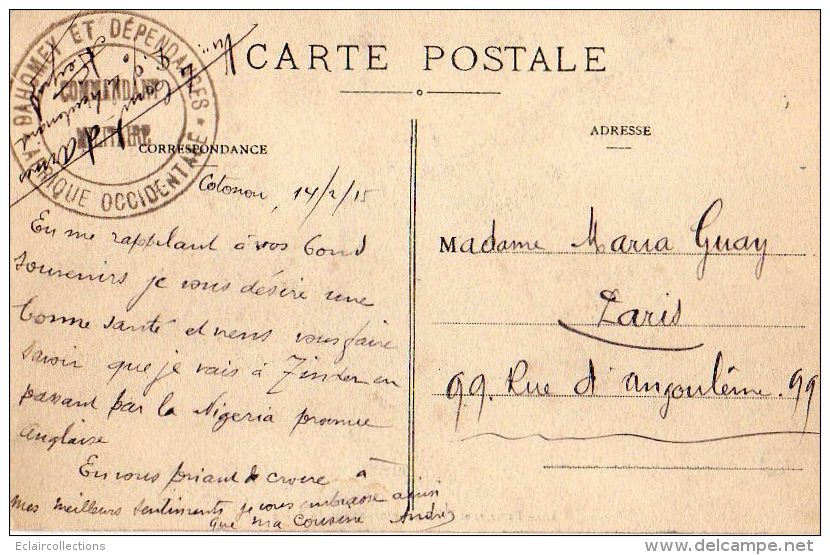 DAHOMEY ET DÉPENDANCES
COMMANDANT
MILITAIRE
AFRIQUE OCCIDENTALE
CARTE POSTALE
CORRESPONDANCE
ADRESSE
Cotonou, 14/2/15
En me rappelant à vos bons
souvenirs je vous désire une
bonne santé et viens vous faire
savoir que je vais à Zinder en
passant par la Nigeria
anglaise
En vous priant de croire à
mes meilleurs sentiments je vous embrasse ainsi
que ma cousine André
Madame Maria Guay
Paris
99. Rue d'angoulême. 99
Eclaircollections
www.delcampe.net